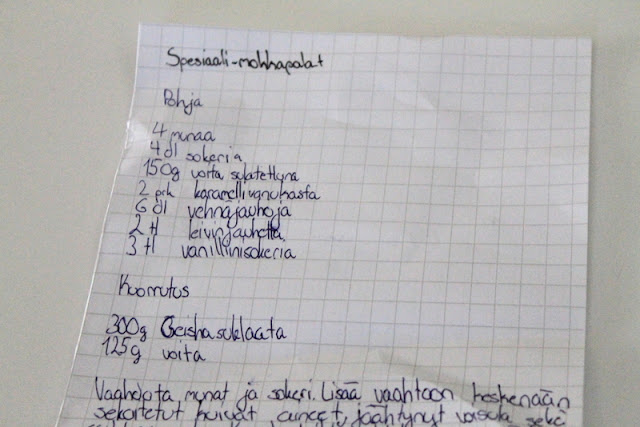 Spesiaali-mokkapalat
Pohja
4 munaa
4 dl sokeria
150g voita sulatettuna
2 prk karamellivanukasta
6 dl vehnäjauhoja
2 tl leivinjauhetta
3 tl vanilliinisokeria
Kuorrutus
300g Geisha suklaata
125g voita
Vaahdota munat ja sokeri. Lisää vaahtoon keskenään
sekoitetut kuivat aineet, jäähtynyt voisula sekä